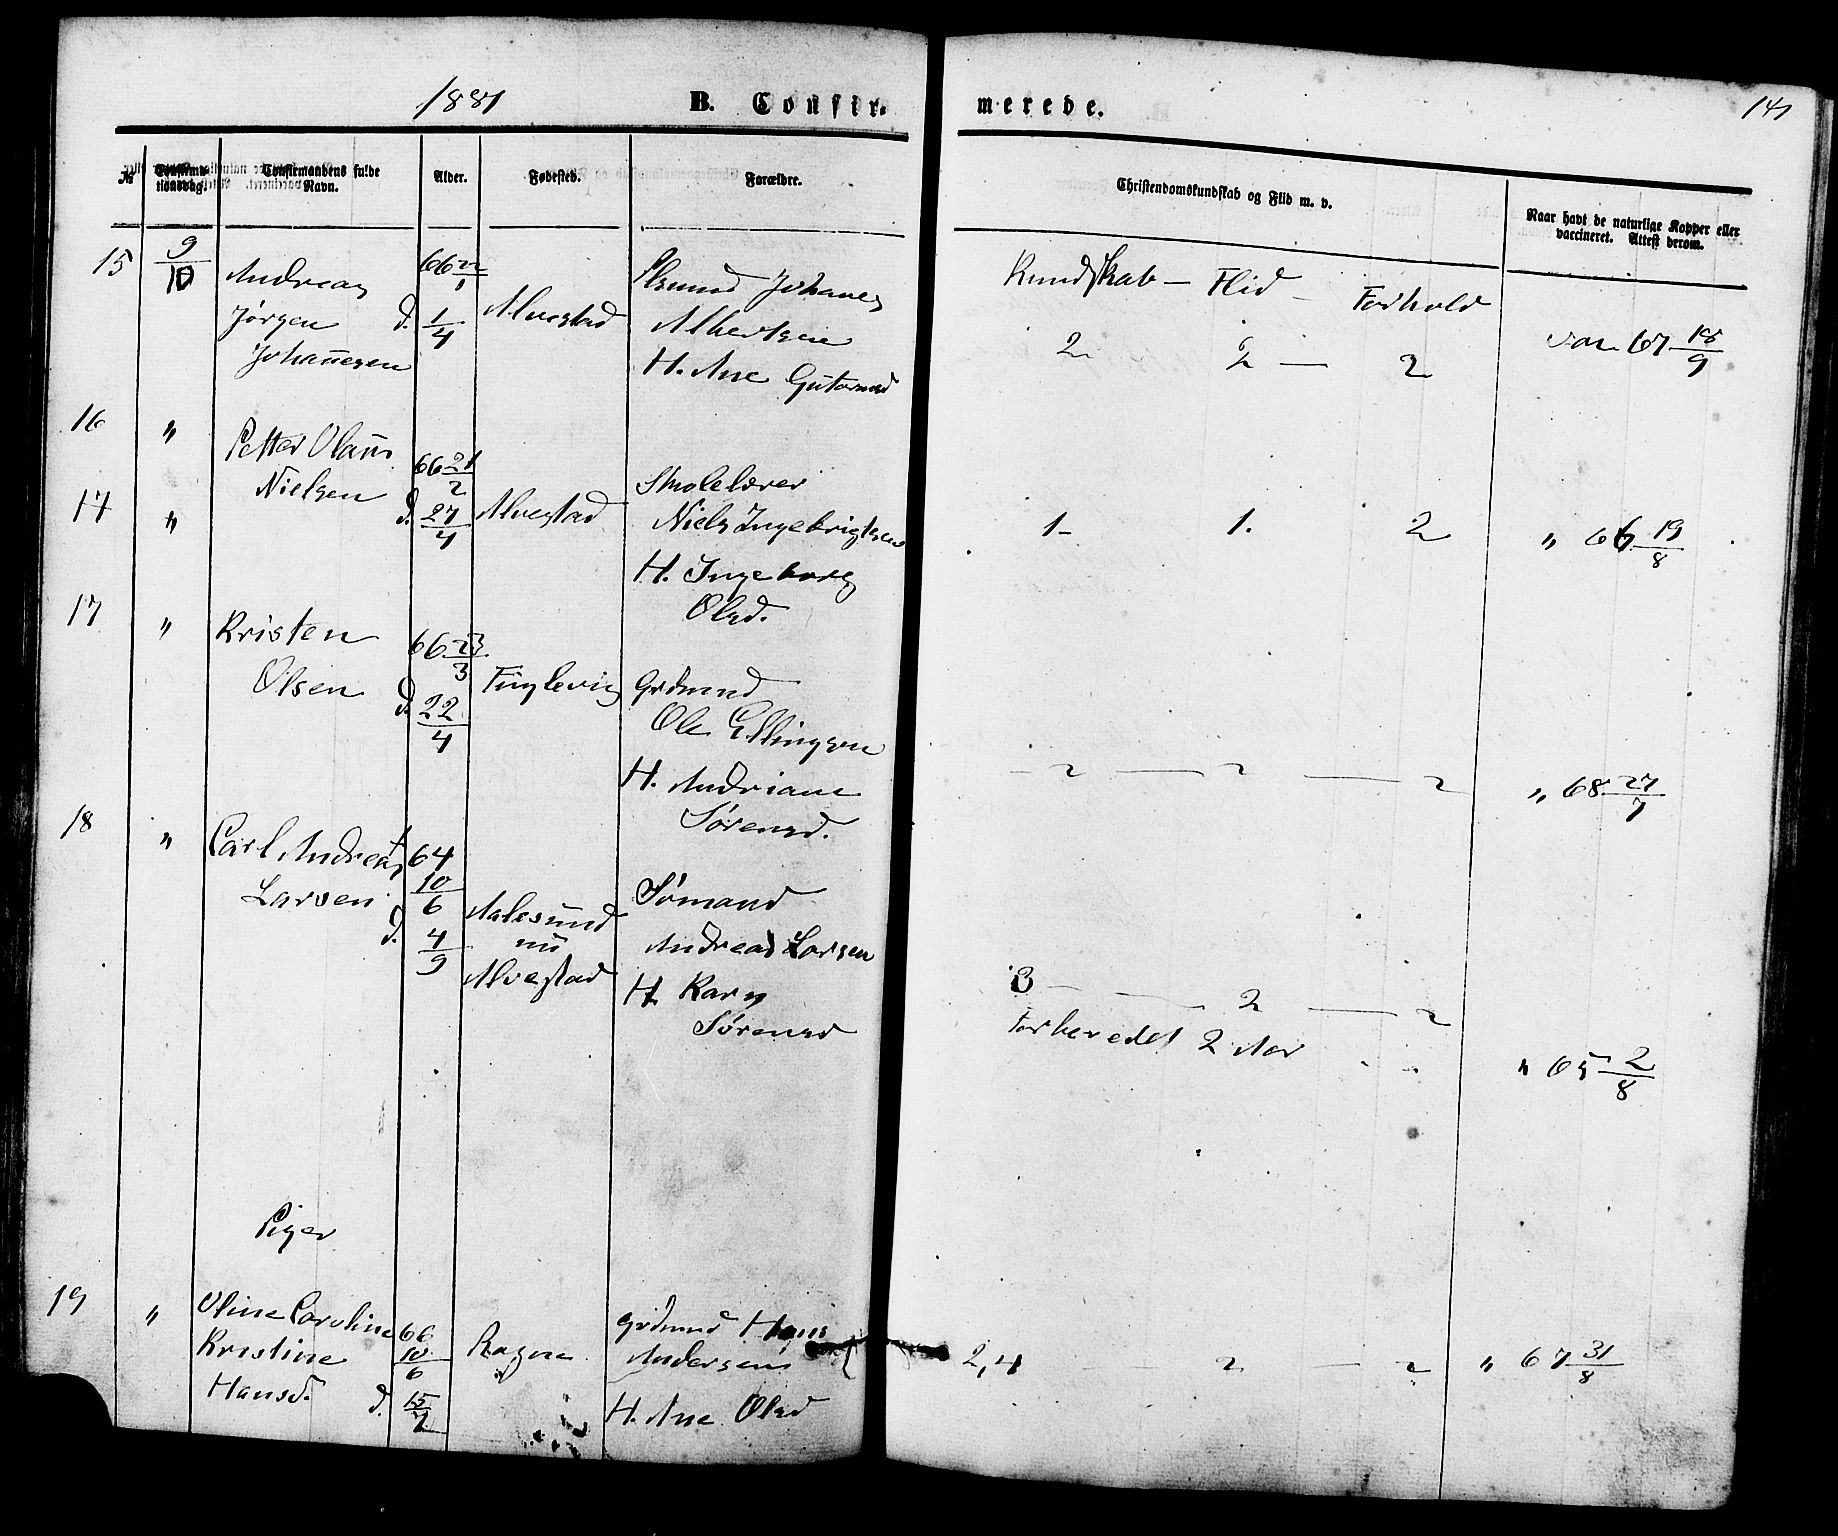 1881 B. Confir- merede. 141
№ Confirma- tionsdag. Confirmandens fulde Navn. Alder. Fødested. Forældre. Christendomskundskab og Flid m. v. Naar havt de naturlige Kopper eller vaccineret. Attest derom.
15 9/10 Andreas 66 22/1 Johanes Kundskab – Flid – Forhold
Jørgen d. 1/4 Alvestad Albertsen 2 2 – 2 67 18/9
Johannesen H. Ane Gutormsd
16 " Petter Olaus 66 21/2 Skolelærer
Nielsen d. 27/4 Alvestad Niels Ingebrigtsen 1 – 1. 2 " 66 19/8
17 " H. Ingeborg
Olsd.
17 " Kristen 66 23/3
Olsen d. 22/4 Fuglevig Grdmand
Ole Ellingsen
H. Andriane – 2 – 2 – 2 " 68 27/7
Sørensd.
18 " Carl Andreas 64 10/6
Larsen d. 4/9 Aalesund Sømand
nu Andreas Larsen
Alvestad H. Karn 3 – 2 – 2
Sørensd Forberedet 2 Aar " 65 2/8
Piger
19 " Oline Caroline 66 10/6 Ragne Grdmand Hans
Kristine Andersen 2,4 2 – 2 " 67 31/8
Hansd. d. 15/7 H. Ane Olsd